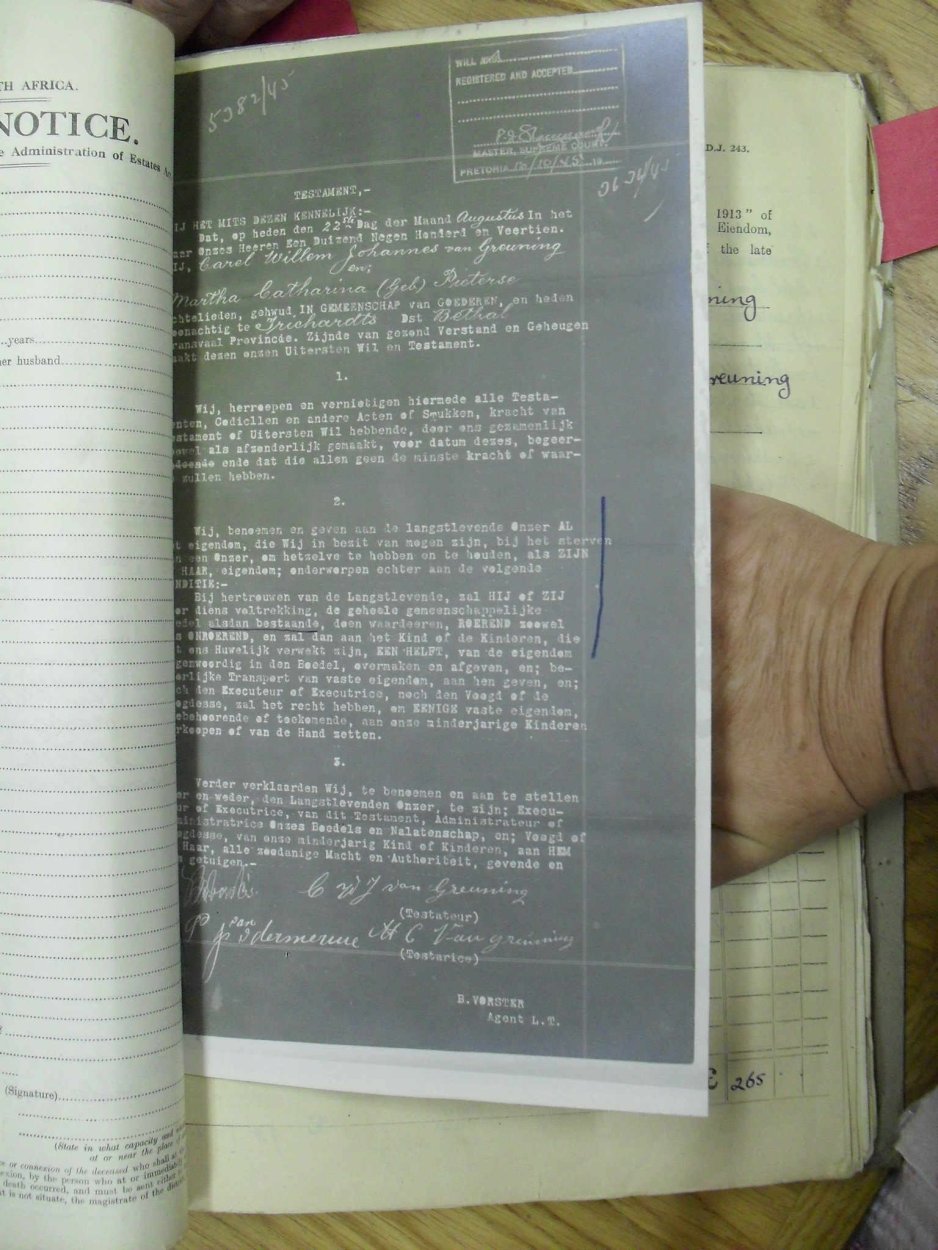 TH AFRICA.
NOTICE.
e Administration of Estates Act
years
er husband
(Signature)
(State in what capacity and
at or near the place of
e or connexion of the deceased who shall at
exion, by the person who at or immediately
death occurred, and must be sent either
t is not situate, the magistrate of the district
5982/45
WILL
REGISTERED AND ACCEPTED
MASTER, SUPREME COURT.
PRETORIA 10/10/45 19
TESTAMENT,-
IJ HET MITS DEZEN KENNELIJK:-
Dat, op heden den 22ste Dag der Maand Augustus In het
aar Onzes Heeren Een Duizend Negen Honderd en Veertien.
IJ, Carel Willem Johannes van Greuning
en;
Martha Catharina (Geb) Pieterse
chtelieden, gehwud IN GEMEENSCHAP van GOEDEREN, en heden
oenachtig te Trichardts Dst Bethal
ransvaal Provincde. Zijnde van gezond Verstand en Geheugen
aakt dezen onzen Uitersten Wil en Testament.
1.
Wij, herroepen en vernietigen hiermede alle Testa-
enten, Codicllen en andere Acten of Stukken, kracht van
estament of Uitersten Wil hebbende, door ons gezamenlijk
oowel als afzonderlijk gemaakt, voor datum dezes, begeer-
deende ende dat die allen geen de minste kracht of waar-
zullen hebben.
2.
Wij, benoemen en geven aan de langstlevende Onzer AL
t eigendom, die Wij in bezit van mogen zijn, bij het sterven
n een Onzer, om hetzelve te hebben en te houden, als ZIJN
HAAR, eigendom; onderworpen echter aan de volgende
NDITIE:-
Bij hertrouwen van de Langstlevende, zal HIJ of ZIJ
or diens voltrekking, de geheele gemeenschappelijke
edel alsdan bestaande, doen waardeeren, ROEREND zoowel
s ONROEREND, en zal dan aan het Kind of de Kinderen, die
t ons Huwelijk verwekt zijn, EEN HELFT, van de eigendom
genwoordig in den Boedel, overmaken en afgeven, en; be-
orlijke Transport van vaste eigendom, aan hen geven, en;
ch den Executeur of Executrice, noch den Voogd of de
ogdesse, zal het recht hebben, om EENIGE vaste eigendom,
ebehoorende of toekomende, aan onze minderjarige Kinderen
rkoopen of van de Hand zetten.
3.
Verder verklaarden Wij, te benoemen en aan te stellen
er en weder, den Langstlevenden Onzer, te zijn; Execu-
or of Executrice, van dit Testament, Administrateur of
inistratrice Onzes Boedels en Nalatenschap, en; Voogd of
ogdesse, van onze minderjarig Kind of Kinderen, aan HEM
Haar, alle zoodanige Macht en Authoriteit, gevende en
getuigen.-
C W J van Greuning
(Testateur)
M C Van greuning
(Testarice)
B.VORSTER
Agent L.T.
D.J. 243.
1913" of
Eiendom,
the late
ning
reuning
£ 265